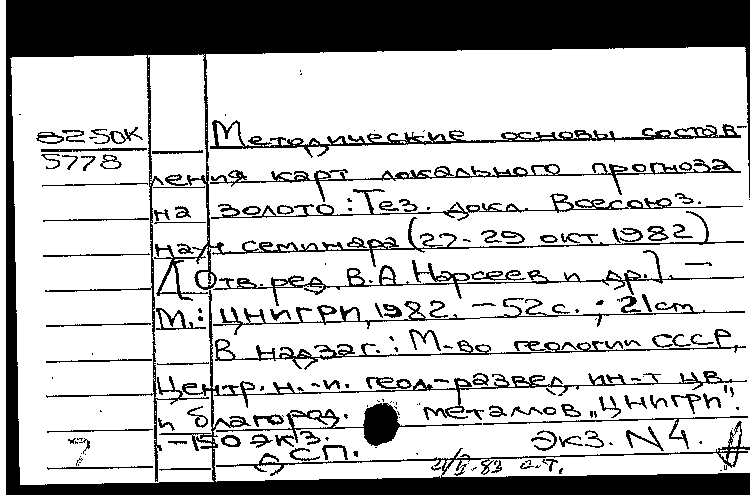 82-50К
5778
Методические основы состав-
ления карт локального прогноза
на золото: Тез. докл. Всесоюз.
семинара (27-29 окт. 1982)
/[Отв. ред. В.А. Нарсеев и др.]. —
М.: ЦНИГРИ, 1982. — 52 с. ; 21 см.
В надзаг.: М-во геологии СССР,
Центр. н.-и. геол.-развед. ин-т цв.
и благород. металлов „ЦНИГРИ".
. — 150 экз.
Экз. N 4.
ДСП.
83
7